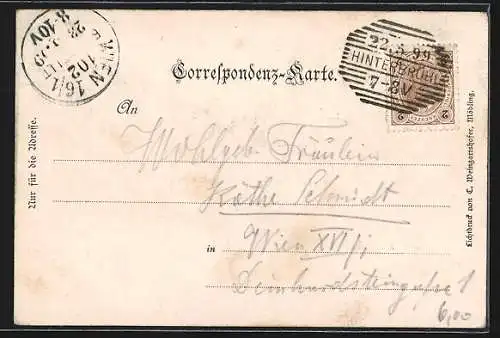 WIEN 16/1
102
8·10V
22.5.99
HINTERBRÜHL
7-8V
Correspondenz-Karte.
An
Wohlgeb Fräulein
Käthe Schmidt
in Wien XVI/1
Deinhardsteingasse 1
6,00
Nur für die Adresse.
Lichtdruck von C. Weingartshofer, Mödling.
2
2